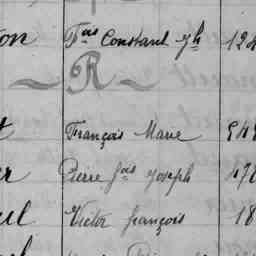 on Fçois Constant Jh 124
R
t François Marie 949
er Pierre fçois Joseph 478
ul Victor françois 18